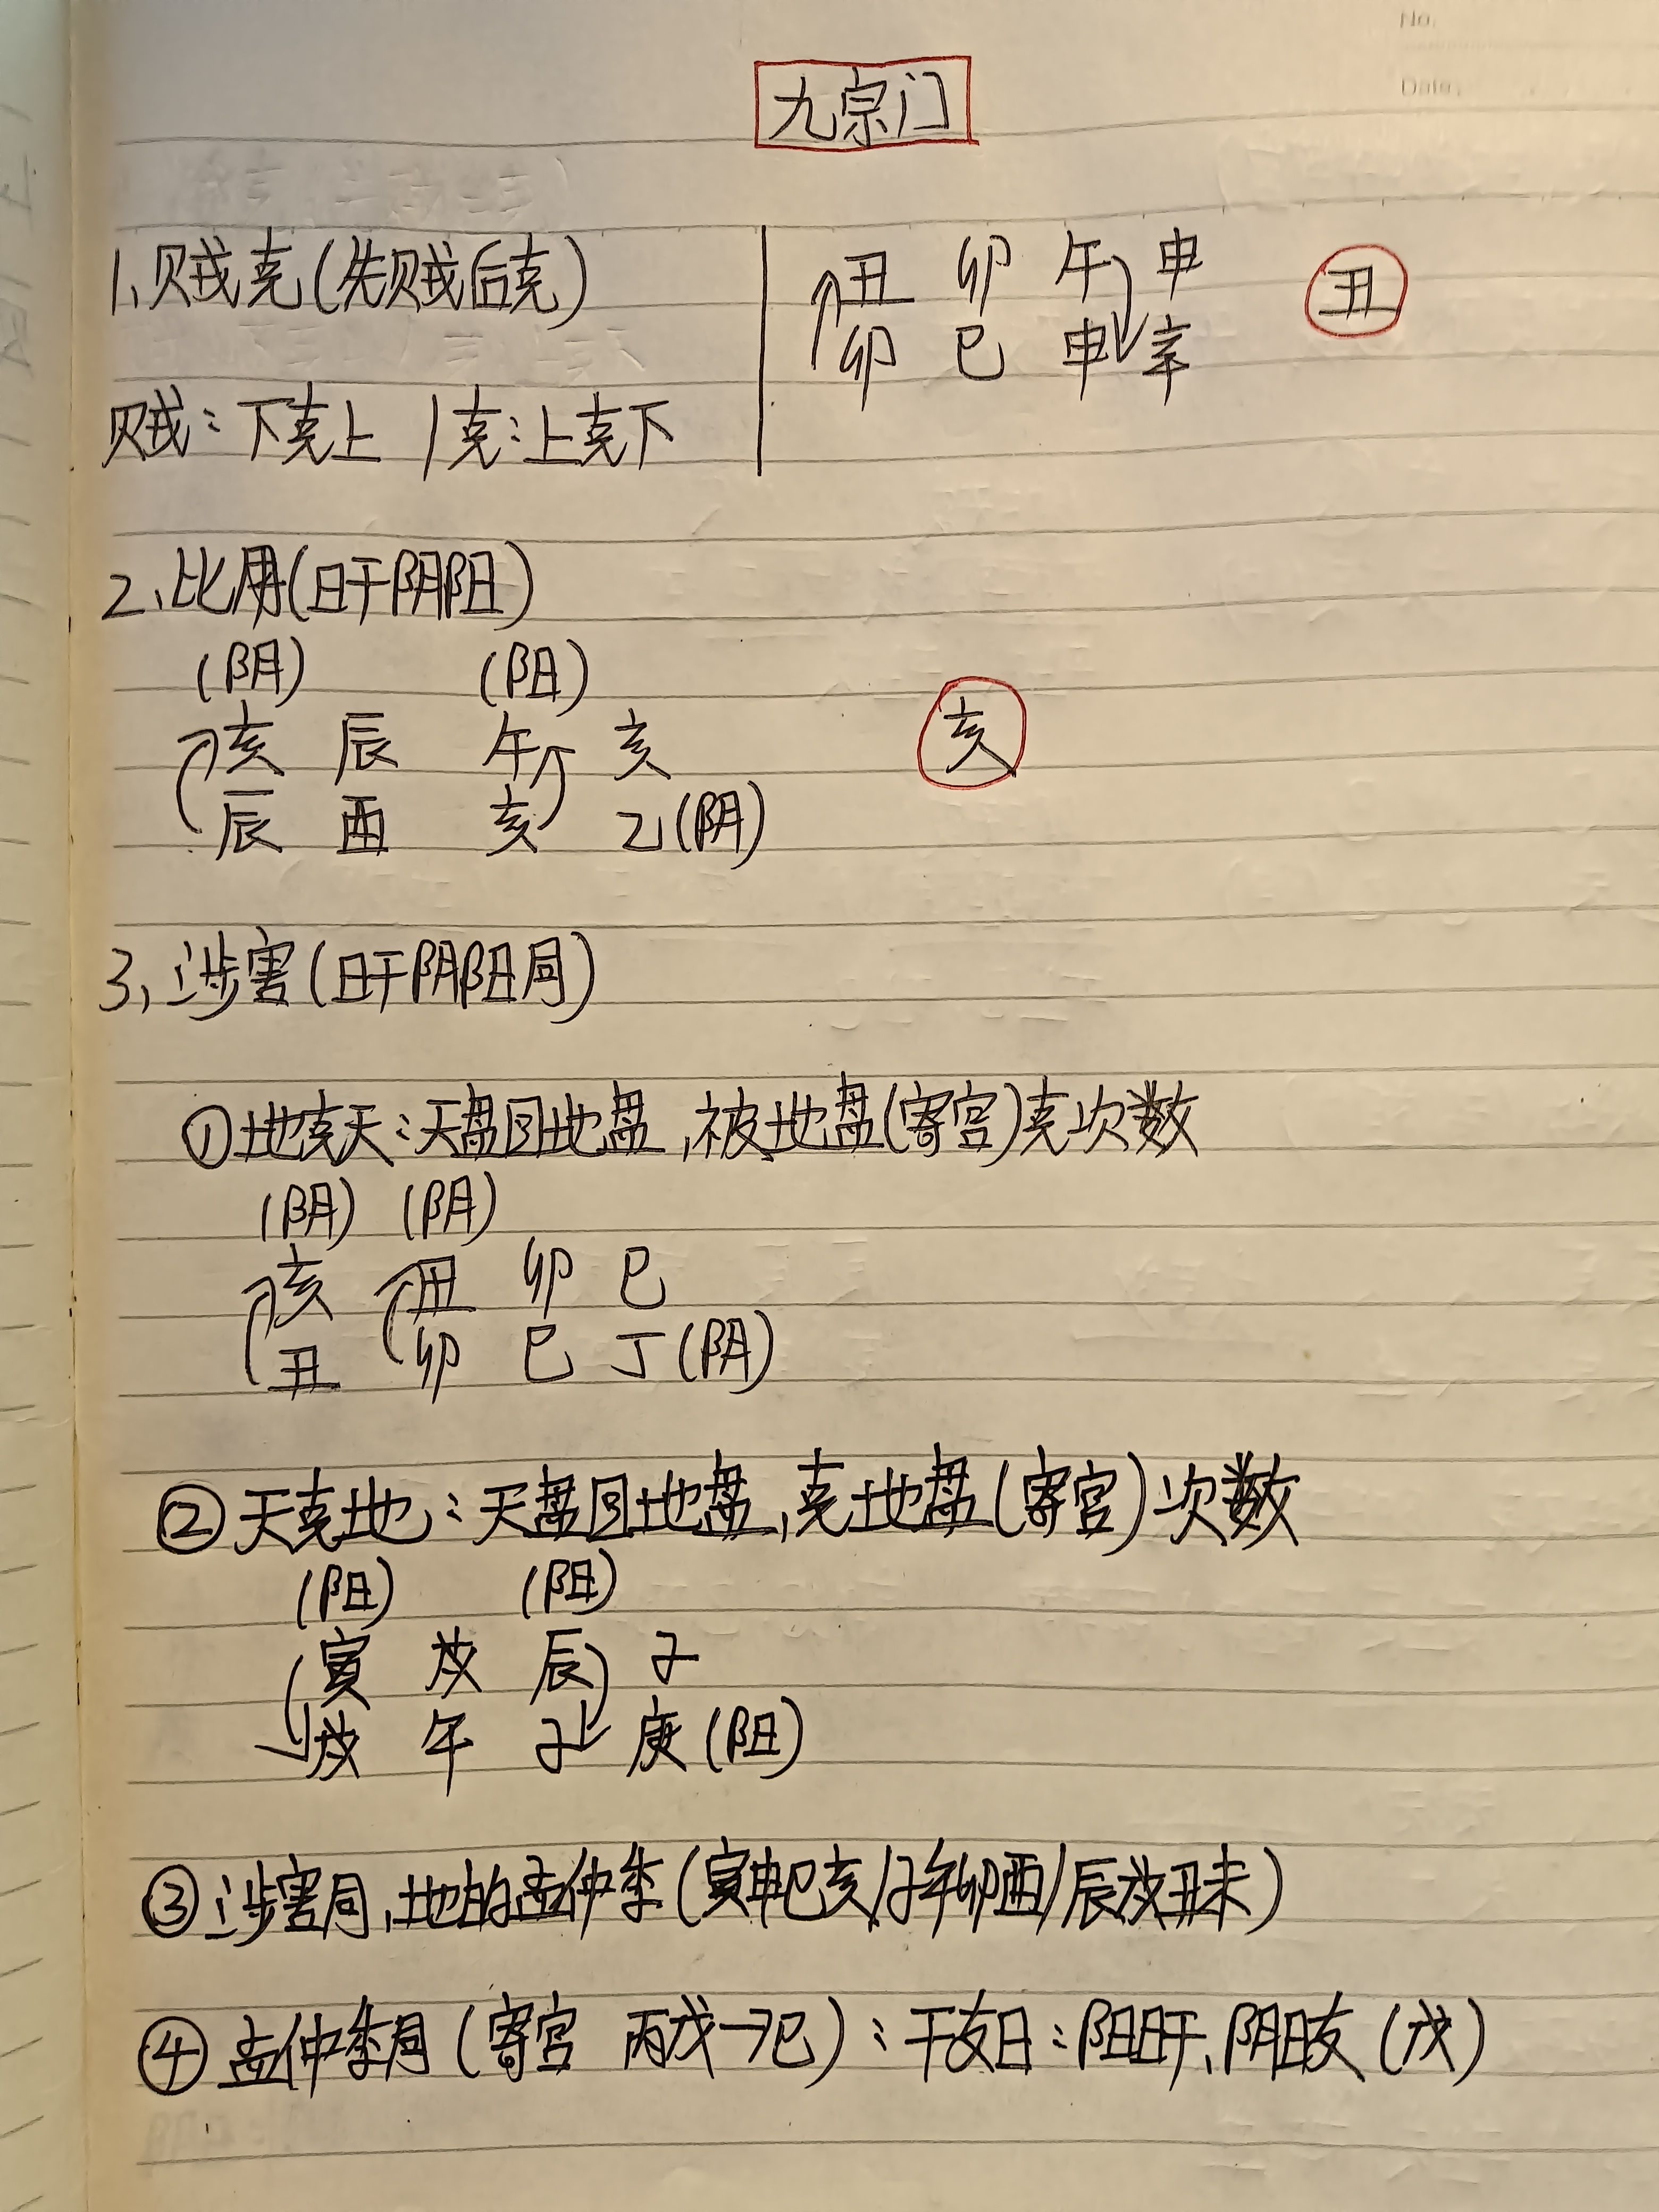 No.
Date.
九宗门
1、贼克(先贼后克)
贼：下克上 / 克：上克下
丑 卯 午 申
卯 巳 申 辛
丑
2、比用(日干阴阳)
(阴) (阳)
亥 辰 午 亥
辰 酉 亥 乙(阴)
亥
3、涉害(日干阴阳同)
①地克天：天盘回地盘,被地盘(寄宫)克次数
(阴) (阴)
亥 丑 卯 巳
丑 卯 巳 丁(阴)
②天克地：天盘回地盘,克地盘(寄宫)次数
(阳) (阳)
寅 戌 辰 子
戌 午 子 庚(阳)
③涉害同,地的孟仲季(寅申巳亥/子午卯酉/辰戌丑未)
④孟仲季同(寄宫 丙戊→巳)：干支日：阳日干、阴日支(戊)